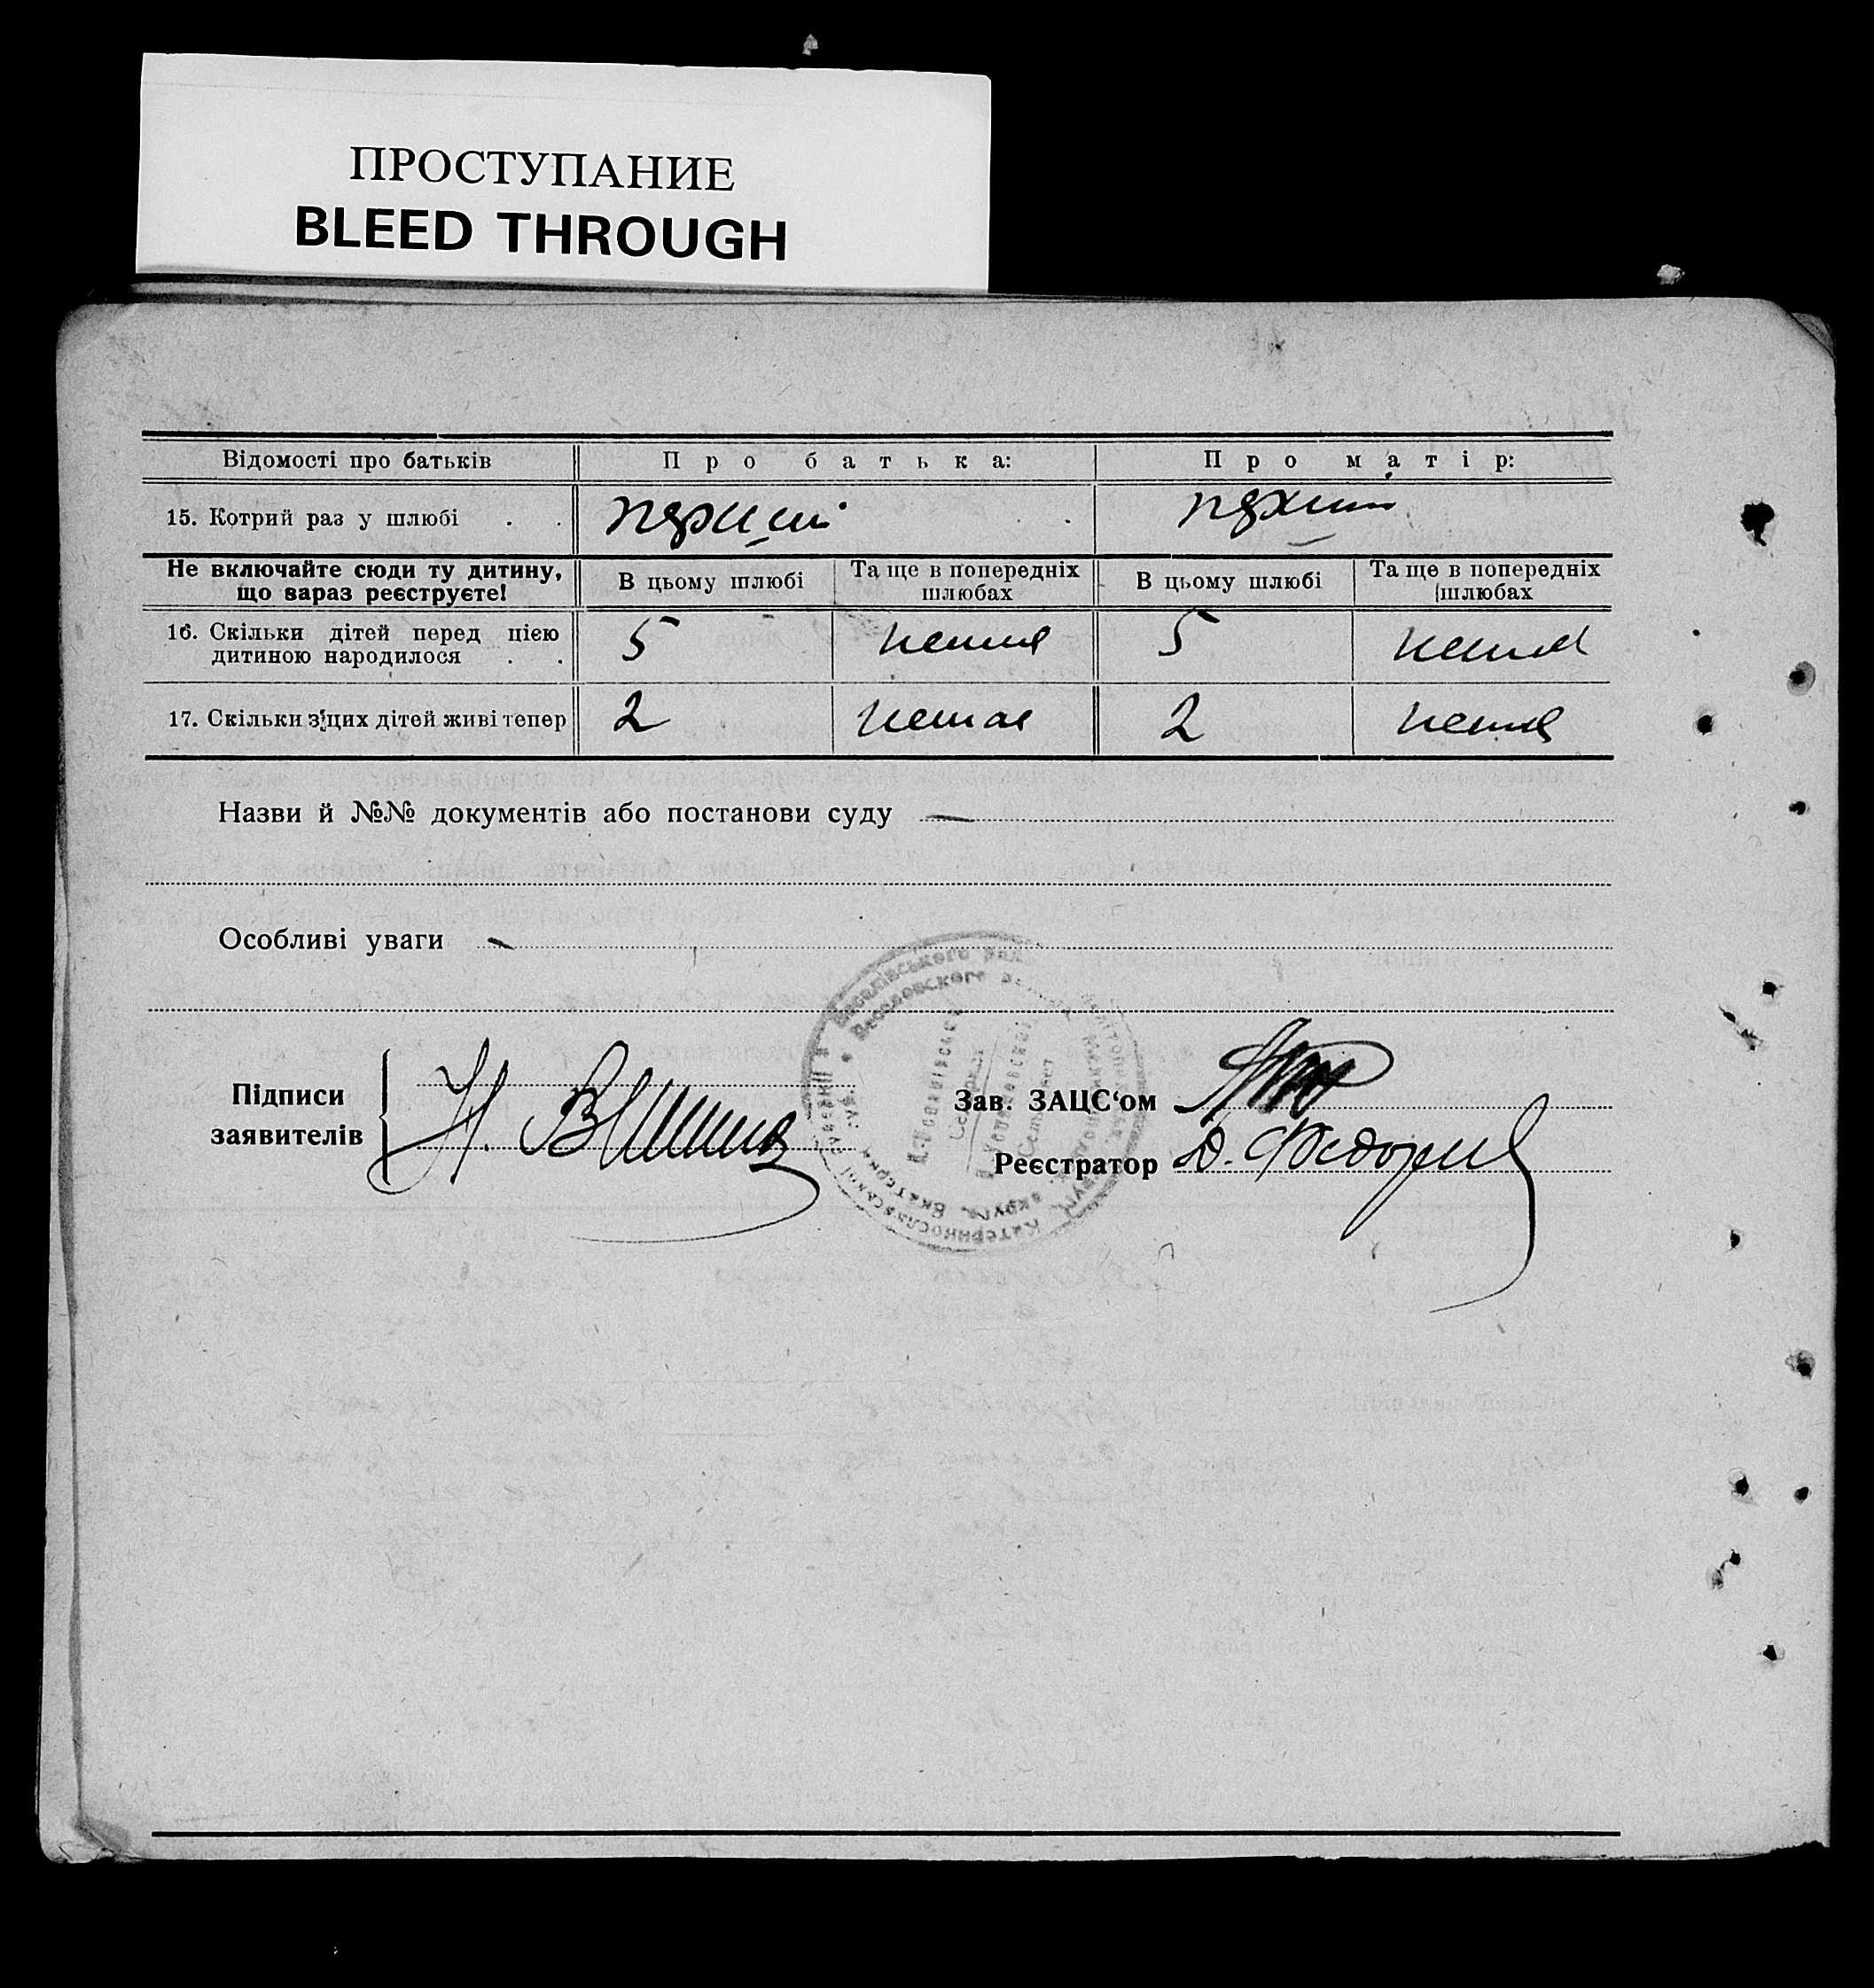 ПРОСТУПАНИЕ
BLEED THROUGH
Відомості про батьків Про батька: Про матір:
15. Котрий раз у шлюбі . . перший перший
Не включайте сюди ту дитину, що зараз реєструєте! В цьому шлюбі Та ще в попередніх шлюбах В цьому шлюбі Та ще в попередніх шлюбах
16. Скільки дітей перед цією дитиною народилося . . 5 немає 5 немає
17. Скільки з цих дітей живі тепер 2 немає 2 немає
Назви й №№ документів або постанови суду —
Особливі уваги —
Підписи заявителів
Зав. ЗАЦС‘ом
Реєстратор Д.